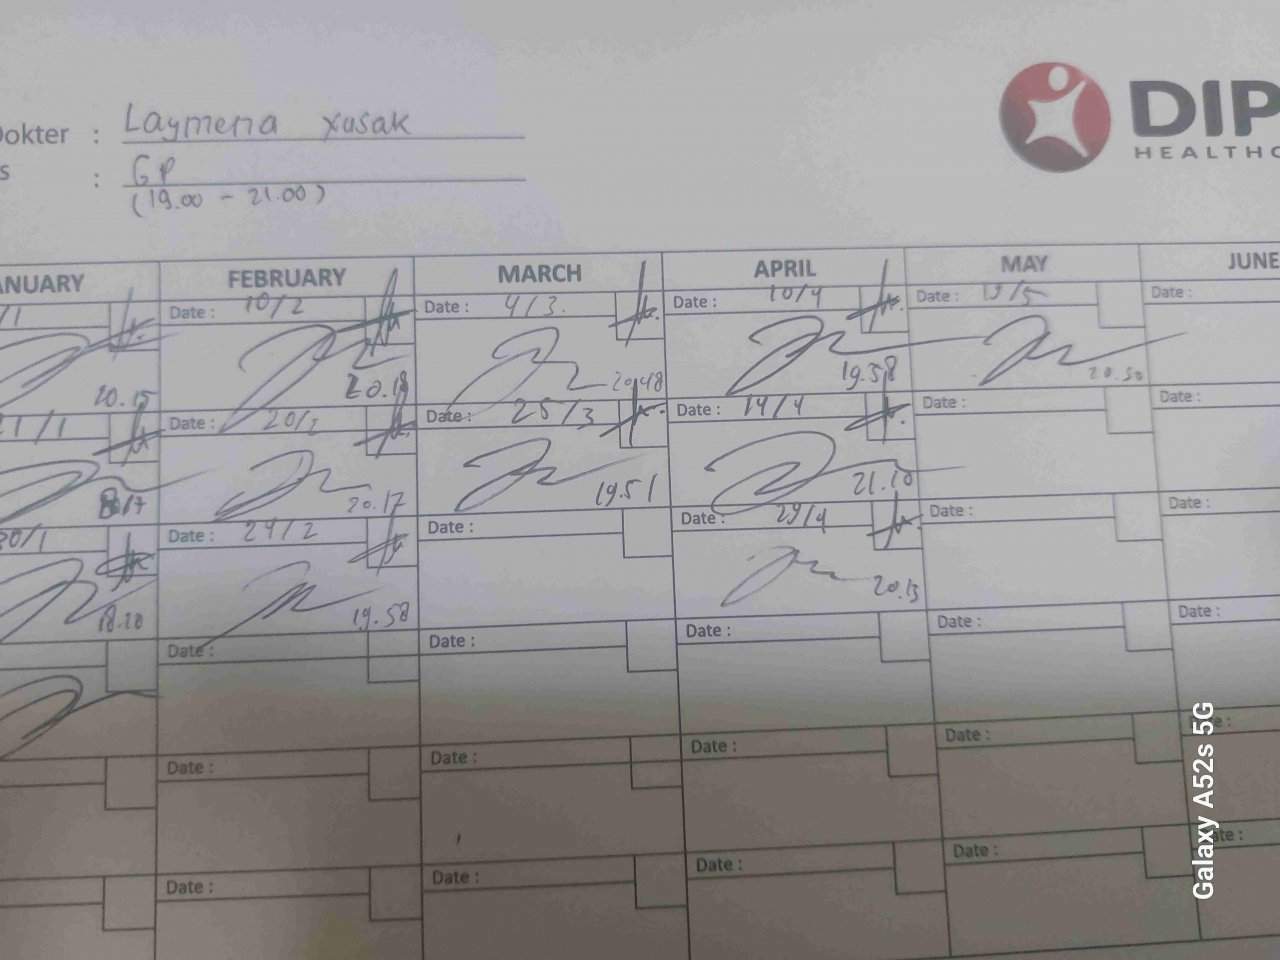 Dokter : Laymena Xusak
s : GP
(19.00 - 21.00)
DIP
HEALTHC
ANUARY FEBRUARY MARCH APRIL MAY JUNE
/1 Date : 10/2 Date : 4/3. Date : 10/4 Date : 13/5 Date :
20.15 20.18 20.48 19.58 20.30
21/1 Date : 20/2 Date : 25/3 Date : 14/4 Date : Date :
20.17 19.51 21.10
30/1 Date : 24/2 Date : Date : 29/4 Date : Date :
18.20 19.58 20.13
Date : Date : Date : Date : Date :
Date : Date : Date : Date :
Date : Date : Date : Date :
Galaxy A52s 5G